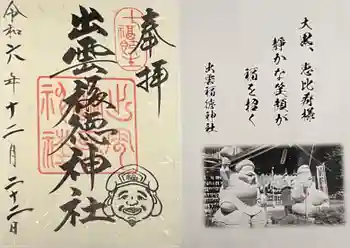 奉拝
七福即生
出雲福徳神社
令和六年十二月二十二日
大黒、恵比寿様
静かな笑顔が
福を招く
出雲福徳神社